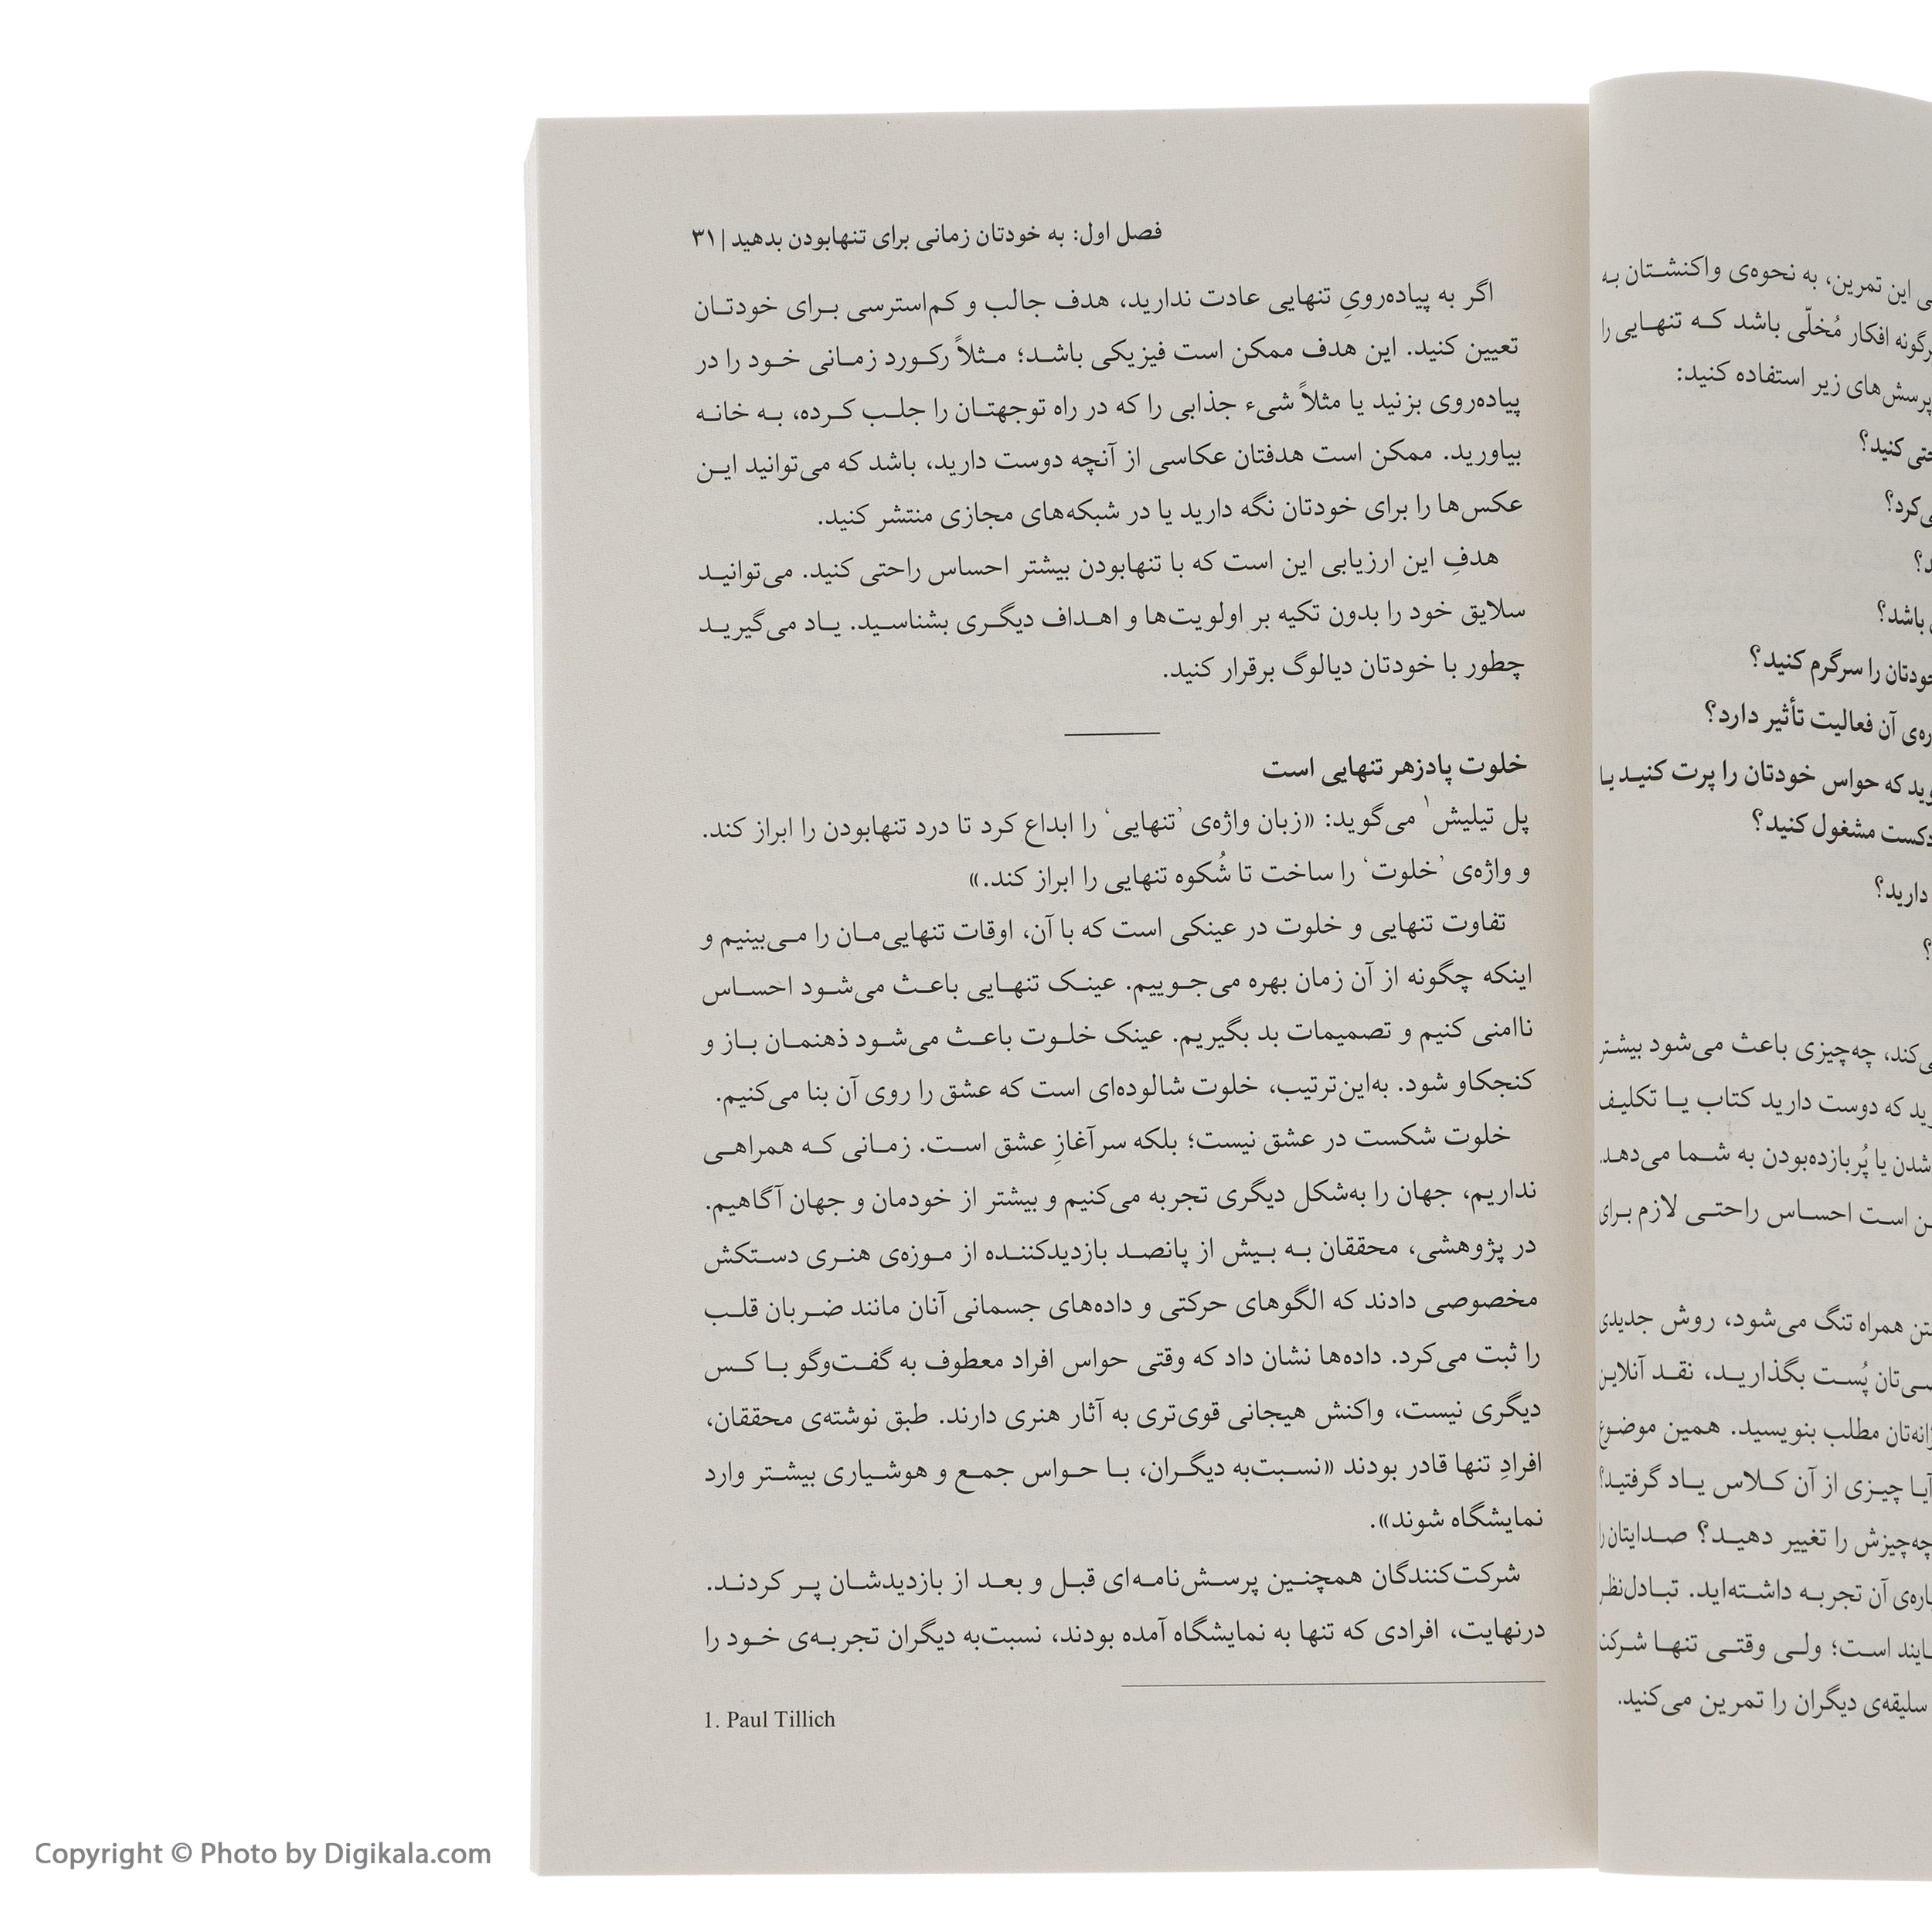 ی این تمرین، به نحوه‌ی واکنشتان به
افکار مُخلّی باشد که تنهایی را
پرسش‌های زیر استفاده کنید:
کنید؟
باشد؟
را سرگرم کنید؟
آن فعالیت تأثیر دارد؟
که حواس خودتان را پرت کنید یا
مشغول کنید؟
دارید؟
چه‌چیزی باعث می‌شود بیشتر
که دوست دارید کتاب یا تکلیف
شدن یا پُربازده‌بودن به شما می‌دهد
است احساس راحتی لازم برای
همراه تنگ می‌شود، روش جدیدی
پُست بگذارید، نقد آنلاین
مطلب بنویسید. همین موضوع
آیا چیزی از آن کلاس یاد گرفتید؟
چه‌چیزش را تغییر دهید؟ صدایتان را
آن تجربه داشته‌اید. تبادل‌نظر
است؛ ولی وقتی تنها
سلیقه‌ی دیگران را تمرین می‌کنید.
فصل اول: به خودتان زمانی برای تنهابودن بدهید | ۳۱
اگر به پیاده‌رویِ تنهایی عادت ندارید، هدف جالب و کم‌استرسی برای خودتان
تعیین کنید. این هدف ممکن است فیزیکی باشد؛ مثلاً رکورد زمانی خود را در
پیاده‌روی بزنید یا مثلاً شیء جذابی را که در راه توجهتان را جلب کرده، به خانه
بیاورید. ممکن است هدفتان عکاسی از آنچه دوست دارید، باشد که می‌توانید این
عکس‌ها را برای خودتان نگه دارید یا در شبکه‌های مجازی منتشر کنید.
هدفِ این ارزیابی این است که با تنهابودن بیشتر احساس راحتی کنید. می‌توانید
سلایق خود را بدون تکیه بر اولویت‌ها و اهداف دیگری بشناسید. یاد می‌گیرید
چطور با خودتان دیالوگ برقرار کنید.
خلوت پادزهر تنهایی است
پل تیلیش۱ می‌گوید: «زبان واژه‌ی ’تنهایی‘ را ابداع کرد تا درد تنهابودن را ابراز کند.
و واژه‌ی ’خلوت‘ را ساخت تا شُکوه تنهایی را ابراز کند.»
تفاوت تنهایی و خلوت در عینکی است که با آن، اوقات تنهایی‌مان را می‌بینیم و
اینکه چگونه از آن زمان بهره می‌جوییم. عینک تنهایی باعث می‌شود احساس
ناامنی کنیم و تصمیمات بد بگیریم. عینک خلوت باعث می‌شود ذهنمان باز و
کنجکاو شود. به‌این‌ترتیب، خلوت شالوده‌ای است که عشق را روی آن بنا می‌کنیم.
خلوت شکست در عشق نیست؛ بلکه سرآغازِ عشق است. زمانی که همراهی
نداریم، جهان را به‌شکل دیگری تجربه می‌کنیم و بیشتر از خودمان و جهان آگاهیم.
در پژوهشی، محققان به بیش از پانصد بازدیدکننده از موزه‌ی هنری دستکش
مخصوصی دادند که الگوهای حرکتی و داده‌های جسمانی آنان مانند ضربان قلب
را ثبت می‌کرد. داده‌ها نشان داد که وقتی حواس افراد معطوف به گفت‌وگو با کس
دیگری نیست، واکنش هیجانی قوی‌تری به آثار هنری دارند. طبق نوشته‌ی محققان،
افرادِ تنها قادر بودند «نسبت‌به دیگران، با حواس جمع و هوشیاری بیشتر وارد
نمایشگاه شوند».
شرکت‌کنندگان همچنین پرسش‌نامه‌ای قبل و بعد از بازدیدشان پر کردند.
درنهایت، افرادی که تنها به نمایشگاه آمده بودند، نسبت‌به دیگران تجربه‌ی خود را
1. Paul Tillich
Copyright © Photo by Digikala.com